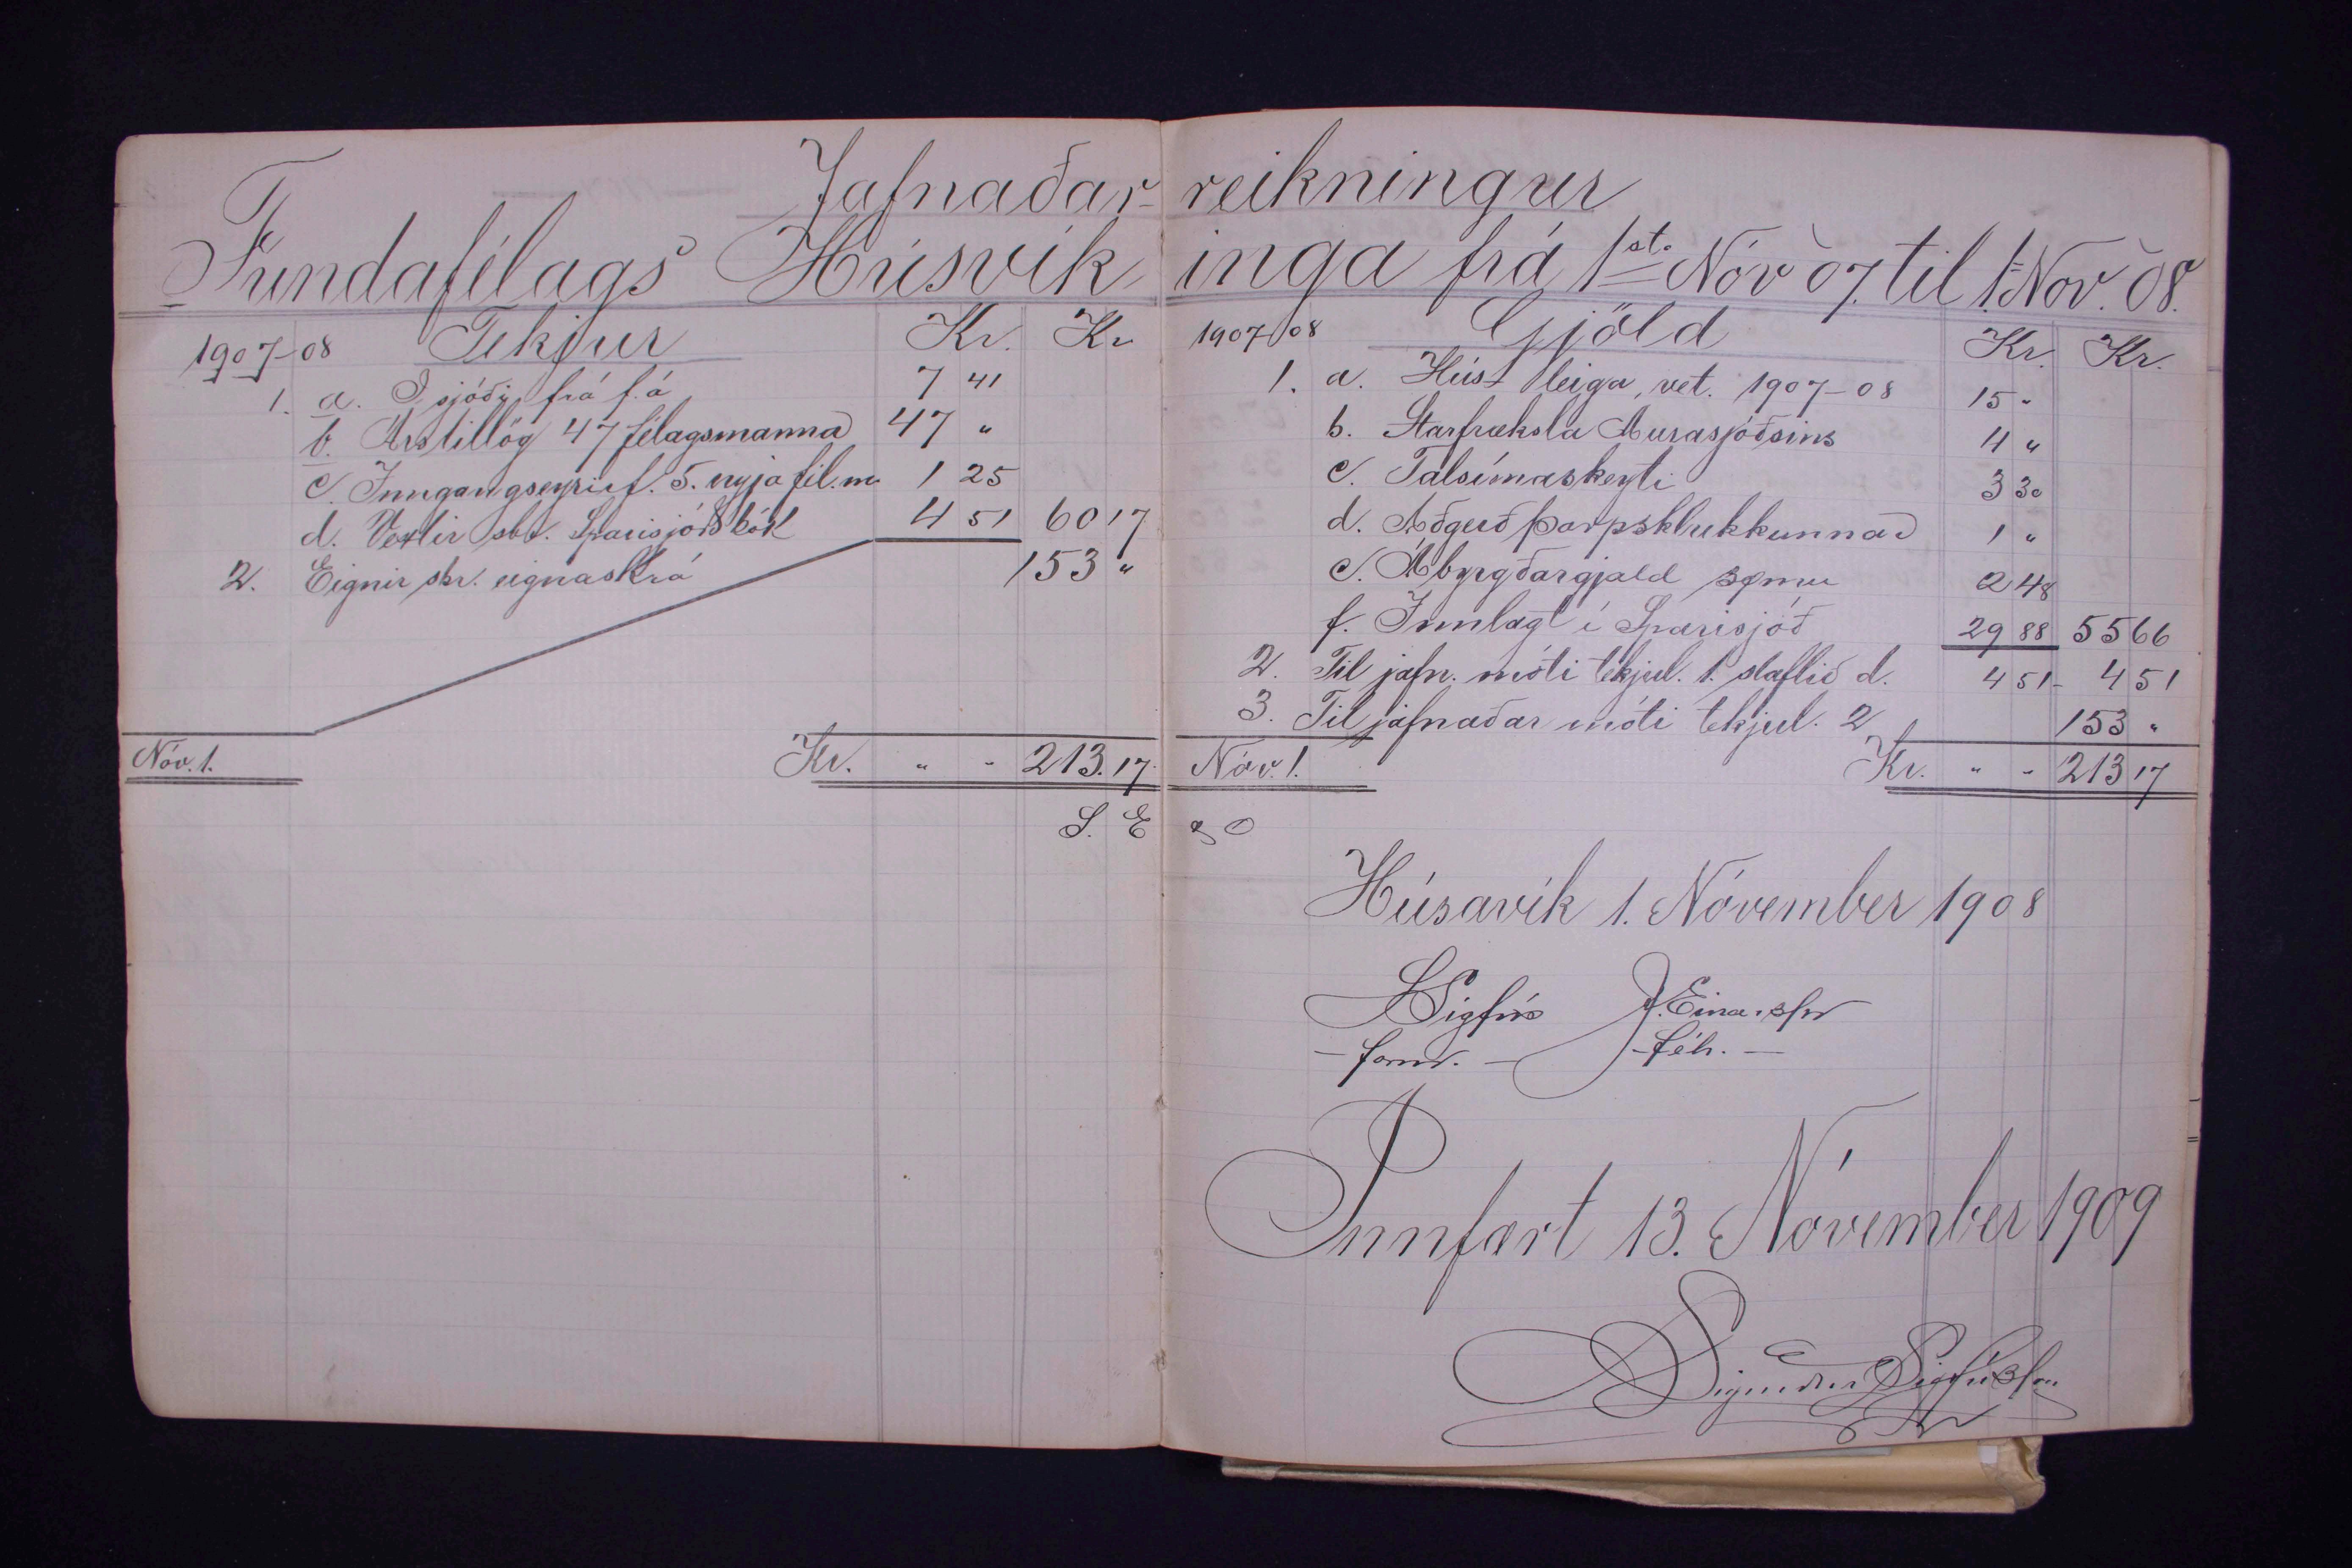 Jafnaðar-reikningur
Fundafélags Húsvíkinga frá 1sta Nóv 07. til 1. Nóv. 08.
1907-08 Tekjur Kr. Kr
1. a. Í sjóði frá f. á 7 41
b. Árstillög 47 félagsmanna 47 "
c. Inngangseyrir f. 5. nyja fél.m. 1 25
d. Vextir sbr. Sparisjóðsbók 4 51 60 17
2. Eignir sbr. eignaskrá 153 "
Nóv. 1. Kr. " - 213.17.
1907-08 Gjöld Kr. Kr.
1. a. Húsaleiga, vet. 1907-08 15 "
b. Starfræksla Aurasjóðsins 4 "
c. Talsímaskeyti 3 30
d. Aðgerð þorpsklukkunnar 1 "
e. Ábyrgðargjald sömu 2 48
f. Innlagt í Sparisjóð 29 88 55 66
2. Til jafn. móti tekjul. 1. staflið d. 4 51 - 4 51
3. Til jafnaðar móti tekjul. 2 153 "
Nóv. 1. Kr. " - 213 17
S. E & O
Húsavík 1. Nóvember 1908
SSigfús J. Einarsson
- form. - - féh. -
Innfært 13. Nóvember 1909
Sigurður Sigfússon